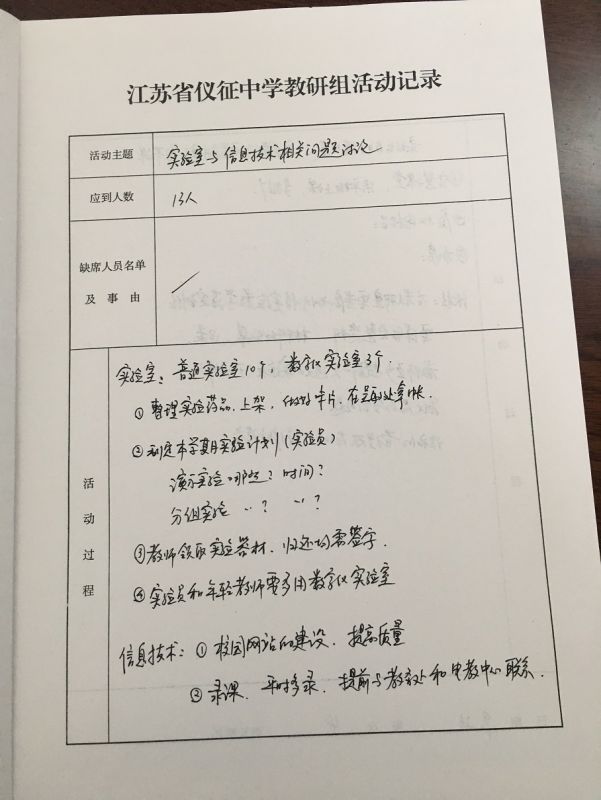 江苏省仪征中学教研组活动记录
活动主题 实验室与信息技术相关问题讨论
应到人数 13人
缺席人员名单
及事由
活动过程
实验室：普通实验室10个，数字化实验室3个
①整理实验药品、上架，做好卡片，
②制定本学期实验计划（实验员）
演示实验 哪些？时间？
分组实验 〃？ 〃？
③教师领取实验器材、归还均需签字．
④实验员和年轻教师要多用数字化实验室
信息技术：①校园网站的建设、提高质量
②录课、平时多录、提前与教务处和电教中心联系．